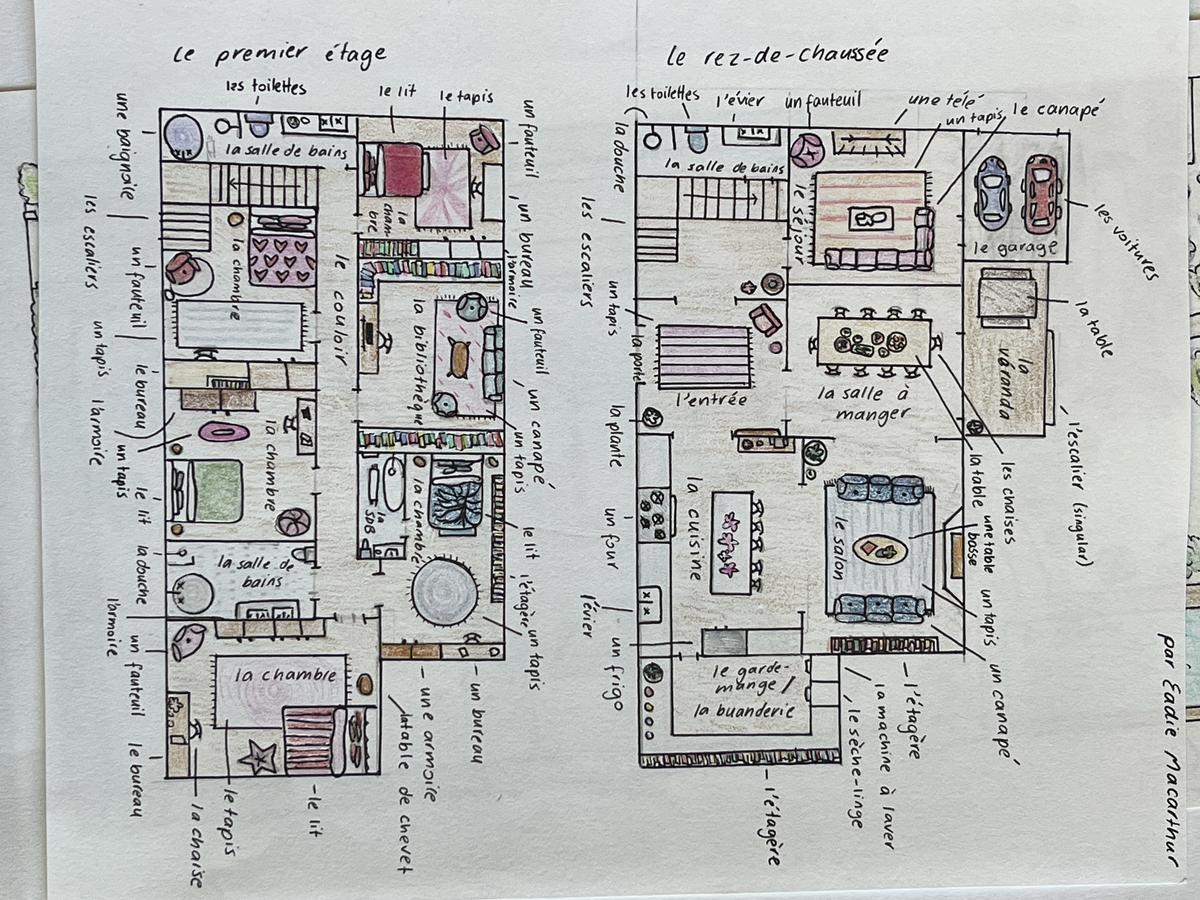 Le premier étage
les toilettes
le lit
le tapis
un fauteuil
une baignoire
la salle de bains
la
cham-
bre
un bureau
l'armoire
les escaliers
la chambre
un fauteuil
le couloir
la bibliothèque
un fauteuil
un canapé
un tapis
un tapis
le bureau
l'armoire
un tapis
la chambre
la
SDB
la chambre
le lit
l'étagère
un tapis
le lit
la douche
la salle de
bains
l'armoire
un fauteuil
le bureau
la chambre
une armoire
un bureau
la table de chevet
le lit
le tapis
la chaise
Le rez-de-chaussée
les toilettes
l'évier
un fauteuil
une télé
un tapis
le canapé
la douche
la salle de bains
le séjour
le garage
les voitures
les escaliers
un tapis
la porte
l'entrée
la salle à
manger
la table
la
véranda
l'escalier (singular)
la plante
un four
la cuisine
le salon
la table
les chaises
une table
basse
un tapis
un canapé
l'évier
un frigo
le garde-
mange/
la buanderie
l'étagère
la machine à laver
le sèche-linge
l'étagère
par Eadie Macarthur